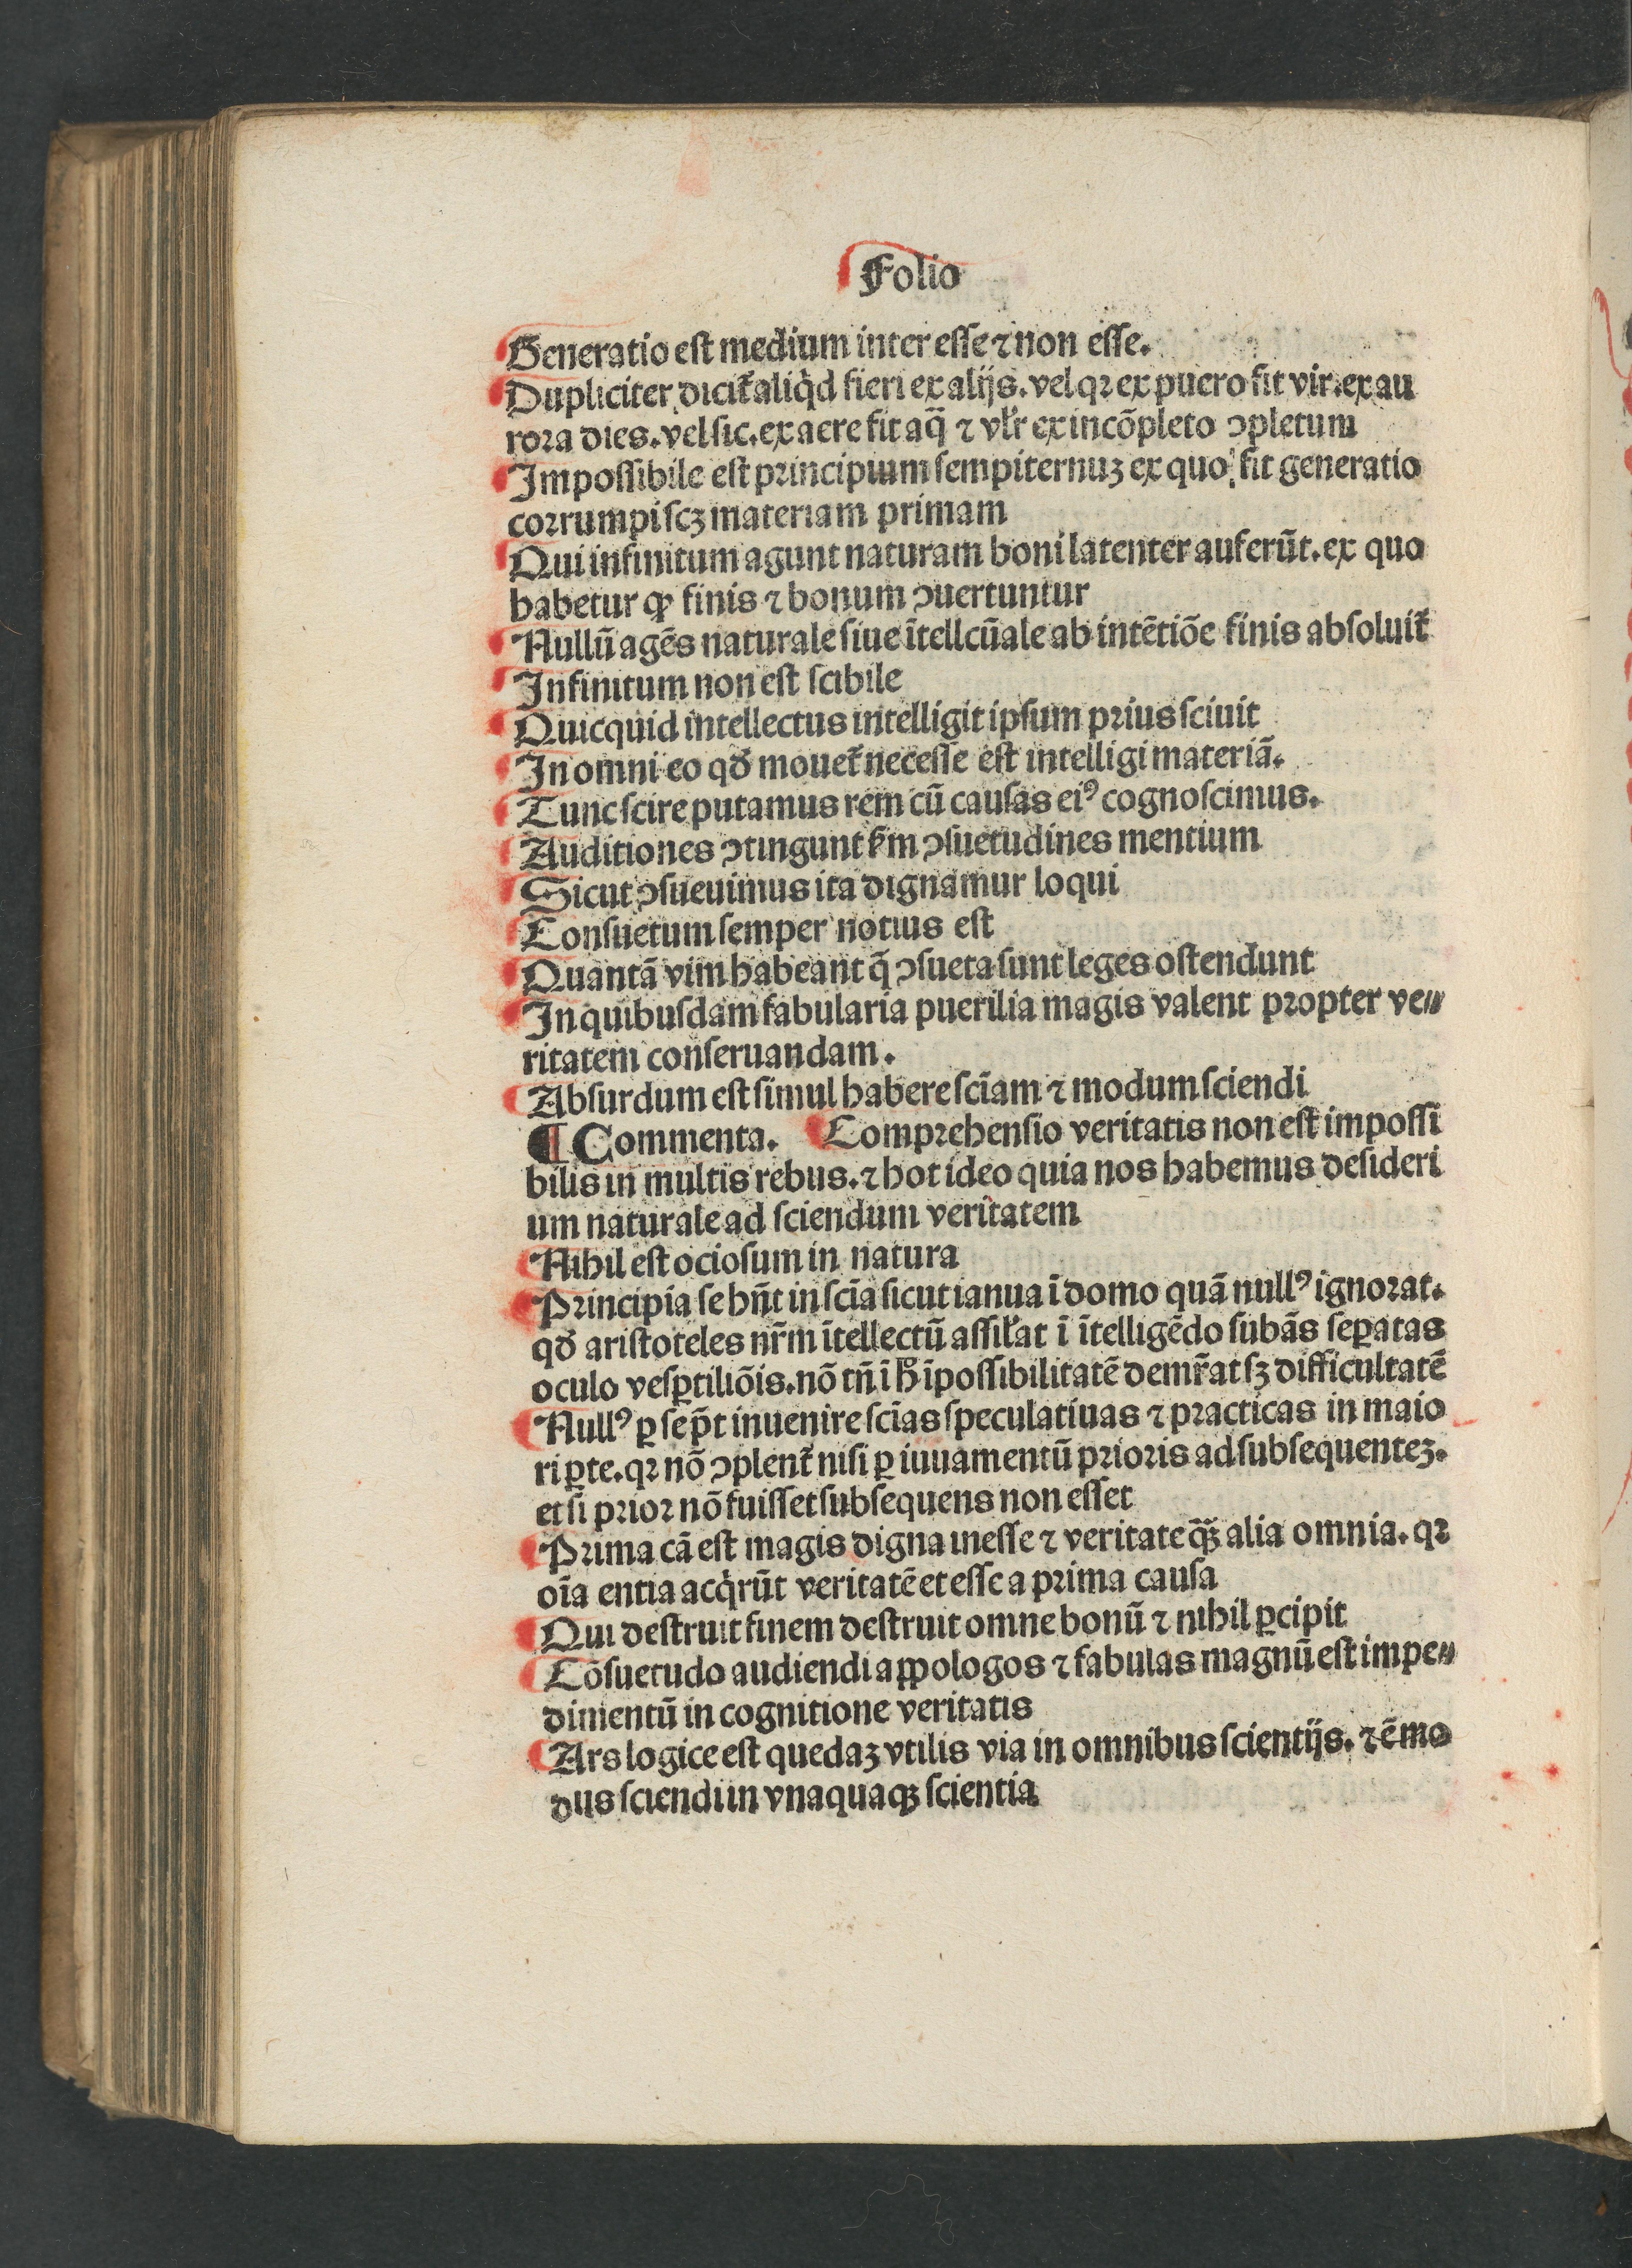 Folio
Generatio est medium inter esse ⁊ non esse.
Dupliciter dicit᷑ aliq̇d fieri ex alijs. vel qꝛ ex puero fit vir. ex au
rora dies. vel sic. ex aere fit aq̄ ⁊ vl̓r ex incōpleto ↄpletum
Impossibile est principium sempiternuꝫ ex quo fit generatio
corrumpi scꝫ materiam primam
Qui infinitum agunt naturam boni latenter auferūt. ex quo
habetur ꝙ finis ⁊ bonum ↄuertuntur
Nullū agēs naturale siue ītellcūale ab intētiōe finis absoluit᷑
Infinitum non est scibile
Quicquid intellectus intelligit ipsum prius sciuit
In omni eo qđ mouet᷑ necesse est intelligi materiā.
Tunc scire putamus rem cū causas eiꝰ cognoscimus.
Auditiones ↄtingunt ẜm ↄsuetudines mentium
Sicut ↄsueuimus ita dignamur loqui
Consuetum semper notius est
Quantā vim habeant q̄ ↄsueta sunt leges ostendunt
In quibusdam fabularia puerilia magis valent propter ve⸗
ritatem conseruandam.
Absurdum est simul habere sciam̄ ⁊ modum sciendi
¶ Commenta. Comprehensio veritatis non est impossi
bilis in multis rebus. ⁊ hot ideo quia nos habemus desideri
um naturale ad sciendum veritatem
Nihil est ociosum in natura
Principia se hn̄t in scīa sicut ianua ī domo quā nullꝰ ignorat.
qđ aristoteles nr̄m ītellectū assil̓at ī ītelligēdo subās seꝑatas
oculo vesꝑtiliōis. nō tn̄ ī ħ īpossibilitatē demr̄at sꝫ difficultatē
Nullꝰ ꝑ se pōt inuenire scīas speculatiuas ⁊ practicas in maio
ri ꝑte. qꝛ nō ↄplent᷑ nisi ꝑ iuuamentū prioris ad subsequenteꝫ.
et si prior nō fuisset subsequens non esset
Prima cā est magis digna inesse ⁊ veritate q̄ꝫ alia omnia. qꝛ
oīa entia acq̇rūt veritatē et esse a prima causa
Qui destruit finem destruit omne bonū ⁊ nihil ꝑcipit
Cōsuetudo audiendi appologos ⁊ fabulas magnū est impe⸗
dimentū in cognitione veritatis
Ars logice est quedaꝫ vtilis via in omnibus scientijs. ⁊ ē mo
dus sciendi in vnaquaqꝫ scientia